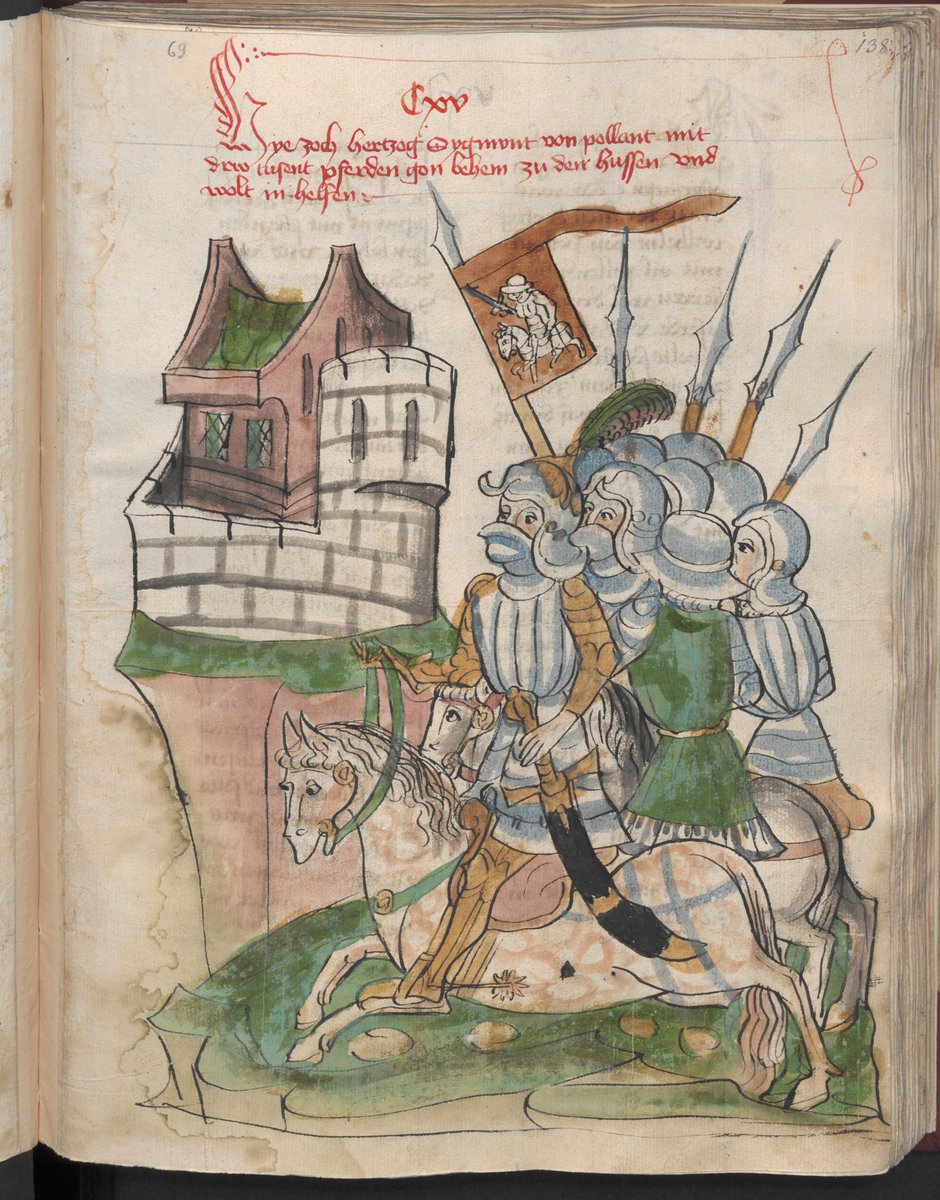 69
138
Cxv
Hye zoch hertzog Sygmont von pollant mit
drw tusent pferden gon behem zu den hussen vnd
wolt in helfen